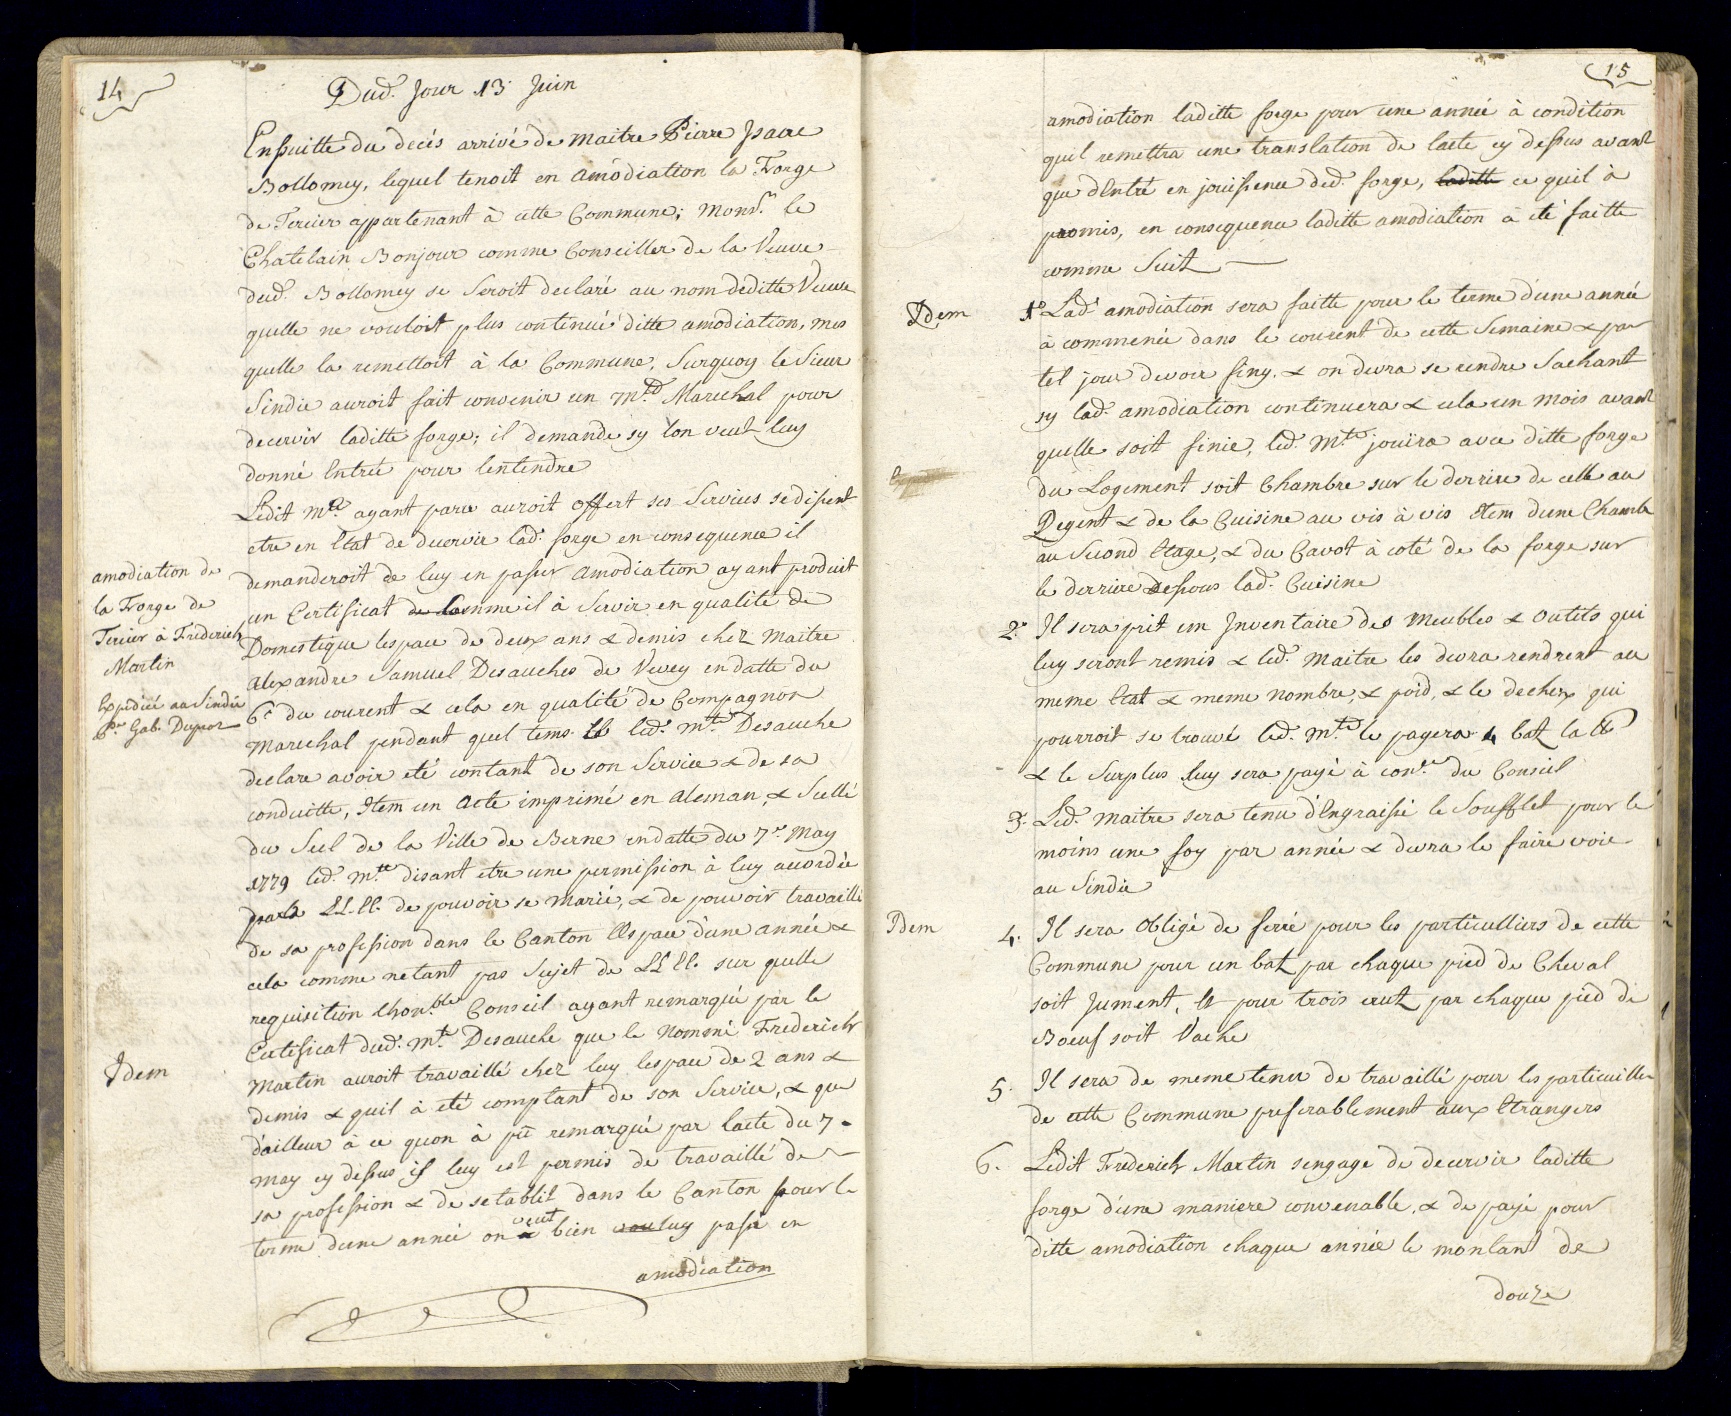 14
Dud. Jour 13 Juin
Ensuitte du decés arrivé de maitre Pierre Isaac
Bollomey, lequel tenoit en amodiation la Forge
de Tercier appartenant à cette Commune; Mons.r le
Chatelain Bonjour comme Conseiller de la Veuve
dud. Bollomey se seroit declaré au nom deditte Veuve
quelle ne vouloit plus continué ditte amodiation, mes
quelle la remettoit à la Commune, Surquoy le Sieur
Sindic auroit fait convenir un m.tre Marechal pour
decervir laditte forge; il demande sy lon veut luy
donné Entrée pour lentendre
Ledit m.tre ayant parue auroit offert ses Services se disent
etre en Etat de decervir lad. forge en consequence il
demanderoit de luy en passer amodiation ayant produit
un Certificat de comme il à Servir en qualité de
Domestique lespace de deux ans & demis chez Maitre
Alexandre Samuel Desauches de Vevey en datte du
6.e du courent & cela en qualité de Compagnon
Marechal pendant quel tems led. m.tre Desauche
declare avoir eté contant de son Service & de sa
conduitte, Item un Acte imprimé en Aleman, & Scellé
du Scel de la Ville de Berne en datte du 7.e May
1779 led. m.tre disant etre une permission à luy accordée
par LL.EE. de pouvoir se marié, & de pouvoir travaillé
de sa profession dans le Canton Espace d'une année &
cela comme netant pas Sujet de LL EE. sur quelle
requisition lhon.ble Conseil ayant remarqué par le
Certificat dud. m.tre Desauche que le nommé Frederich
Martin auroit travaillé chez luy lespace de 2 ans &
demis & quil à eté comptant de son Service, & que
d'ailleur à ce quon à pû remarqué par lacte du 7.e
may cy dessus il luy est permis de travaillé de
sa profession & de setablit dans le Canton pour le
terme dune année on veut bien luy passé en
amodiation
amodiation de
la Forge de
Tercier à Frederich
Martin
Expediée au Sindic
P.re Gab. Dupraz
Idem
15
amodiation laditte forge pour une année à condition
quil remettra une translation de lacte cy dessus avant
que dEntré en jouissence dud. forge, laditte ce quil à
promis, en consequence laditte amodiation à eté faitte
comme Suit
Idem
1.o Lad. amodiation sera faitte pour le terme dune année
à commencée dans le courent de cette Semaine & par
tel jour devoir finy. & on devra se rendre Sachant
sy lad. amodiation continuera & cela un mois avant
quelle soit finie, led. M.tre jouïra avec ditte forge
du Logement soit Chambre sur le derriere de celle au
Regent & de la Cuisine au vis à vis Item dune Chambre
au Second Etage, & du Cavot à coté de la forge sur
le derriere dessous lad. Cuisine
2.o Il sera prit un Inventaire des Meubles & Outils qui
luy seront remis & led. Maitre les devra rendrent au
meme Etat & meme nombre, & poid, & le dechex qui
pourroit se trouvé led. m.tre le payera 4 batz la ℔
& le Surplus luy sera payé à con.te du Conseil
3. Led. Maitre sera tenu d'Engraissé le Soufflet pour le
moins une foy par année & devra le faire voir
au Sindic
Idem
4. Il sera Obligé de ferré pour les particulliers de cette
Commune pour un batz par chaque pied de Cheval
soit Jument, & pour trois crutz par chaque pied de
Boeuf soit Vache
5. Il sera de meme tenu de travaillé pour les particuillers
de cette Commune preferablement aux Etrangers
6. Ledit Frederich Martin sengage de decervir laditte
forge d'une maniere convenable, & de payé pour
ditte amodiation chaque année le montant de
douze